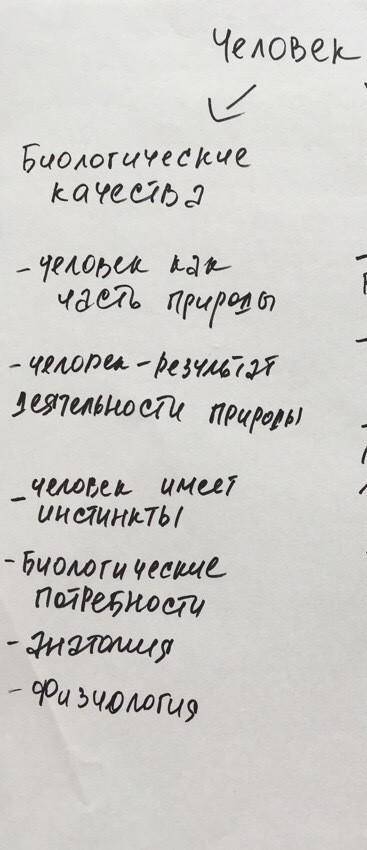 Человек
Биологические
качества
- человек как
часть природы
- человек - результат
деятельности природы
- человек имеет
инстинкты
- Биологические
потребности
- анатомия
- Физиология